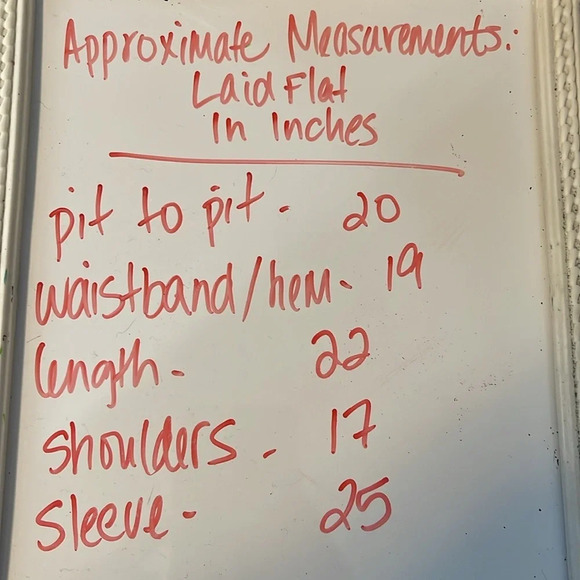 Approximate Measurements:
Laid Flat
In Inches
pit to pit - 20
waistband/hem - 19
length - 22
shoulders - 17
sleeve - 25